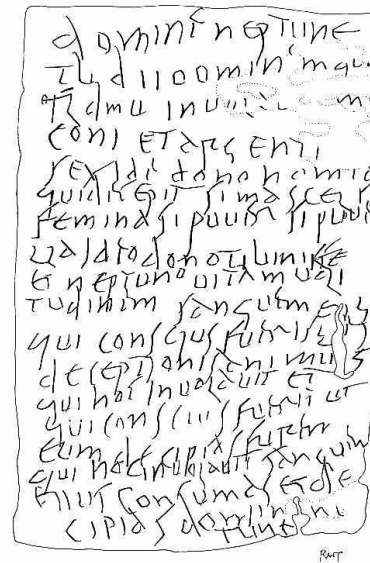 domine neptune
t b d no ominem qui
inuola m
coni et argenti
sex ide dono nomina
qui decepit si mascel si
femina si puuer si puue
dono tibi niske
et neptuno uitam uali
tudinem sanguem eius
qui conscius fueris eius
deceptionis animus
qui hoc inuolauit et
qui conscius fuerit ut
eum decipias furem
qui hoc inuolauit sanguem
eiius consumas et de
cipias domine ne
tune
RSOT